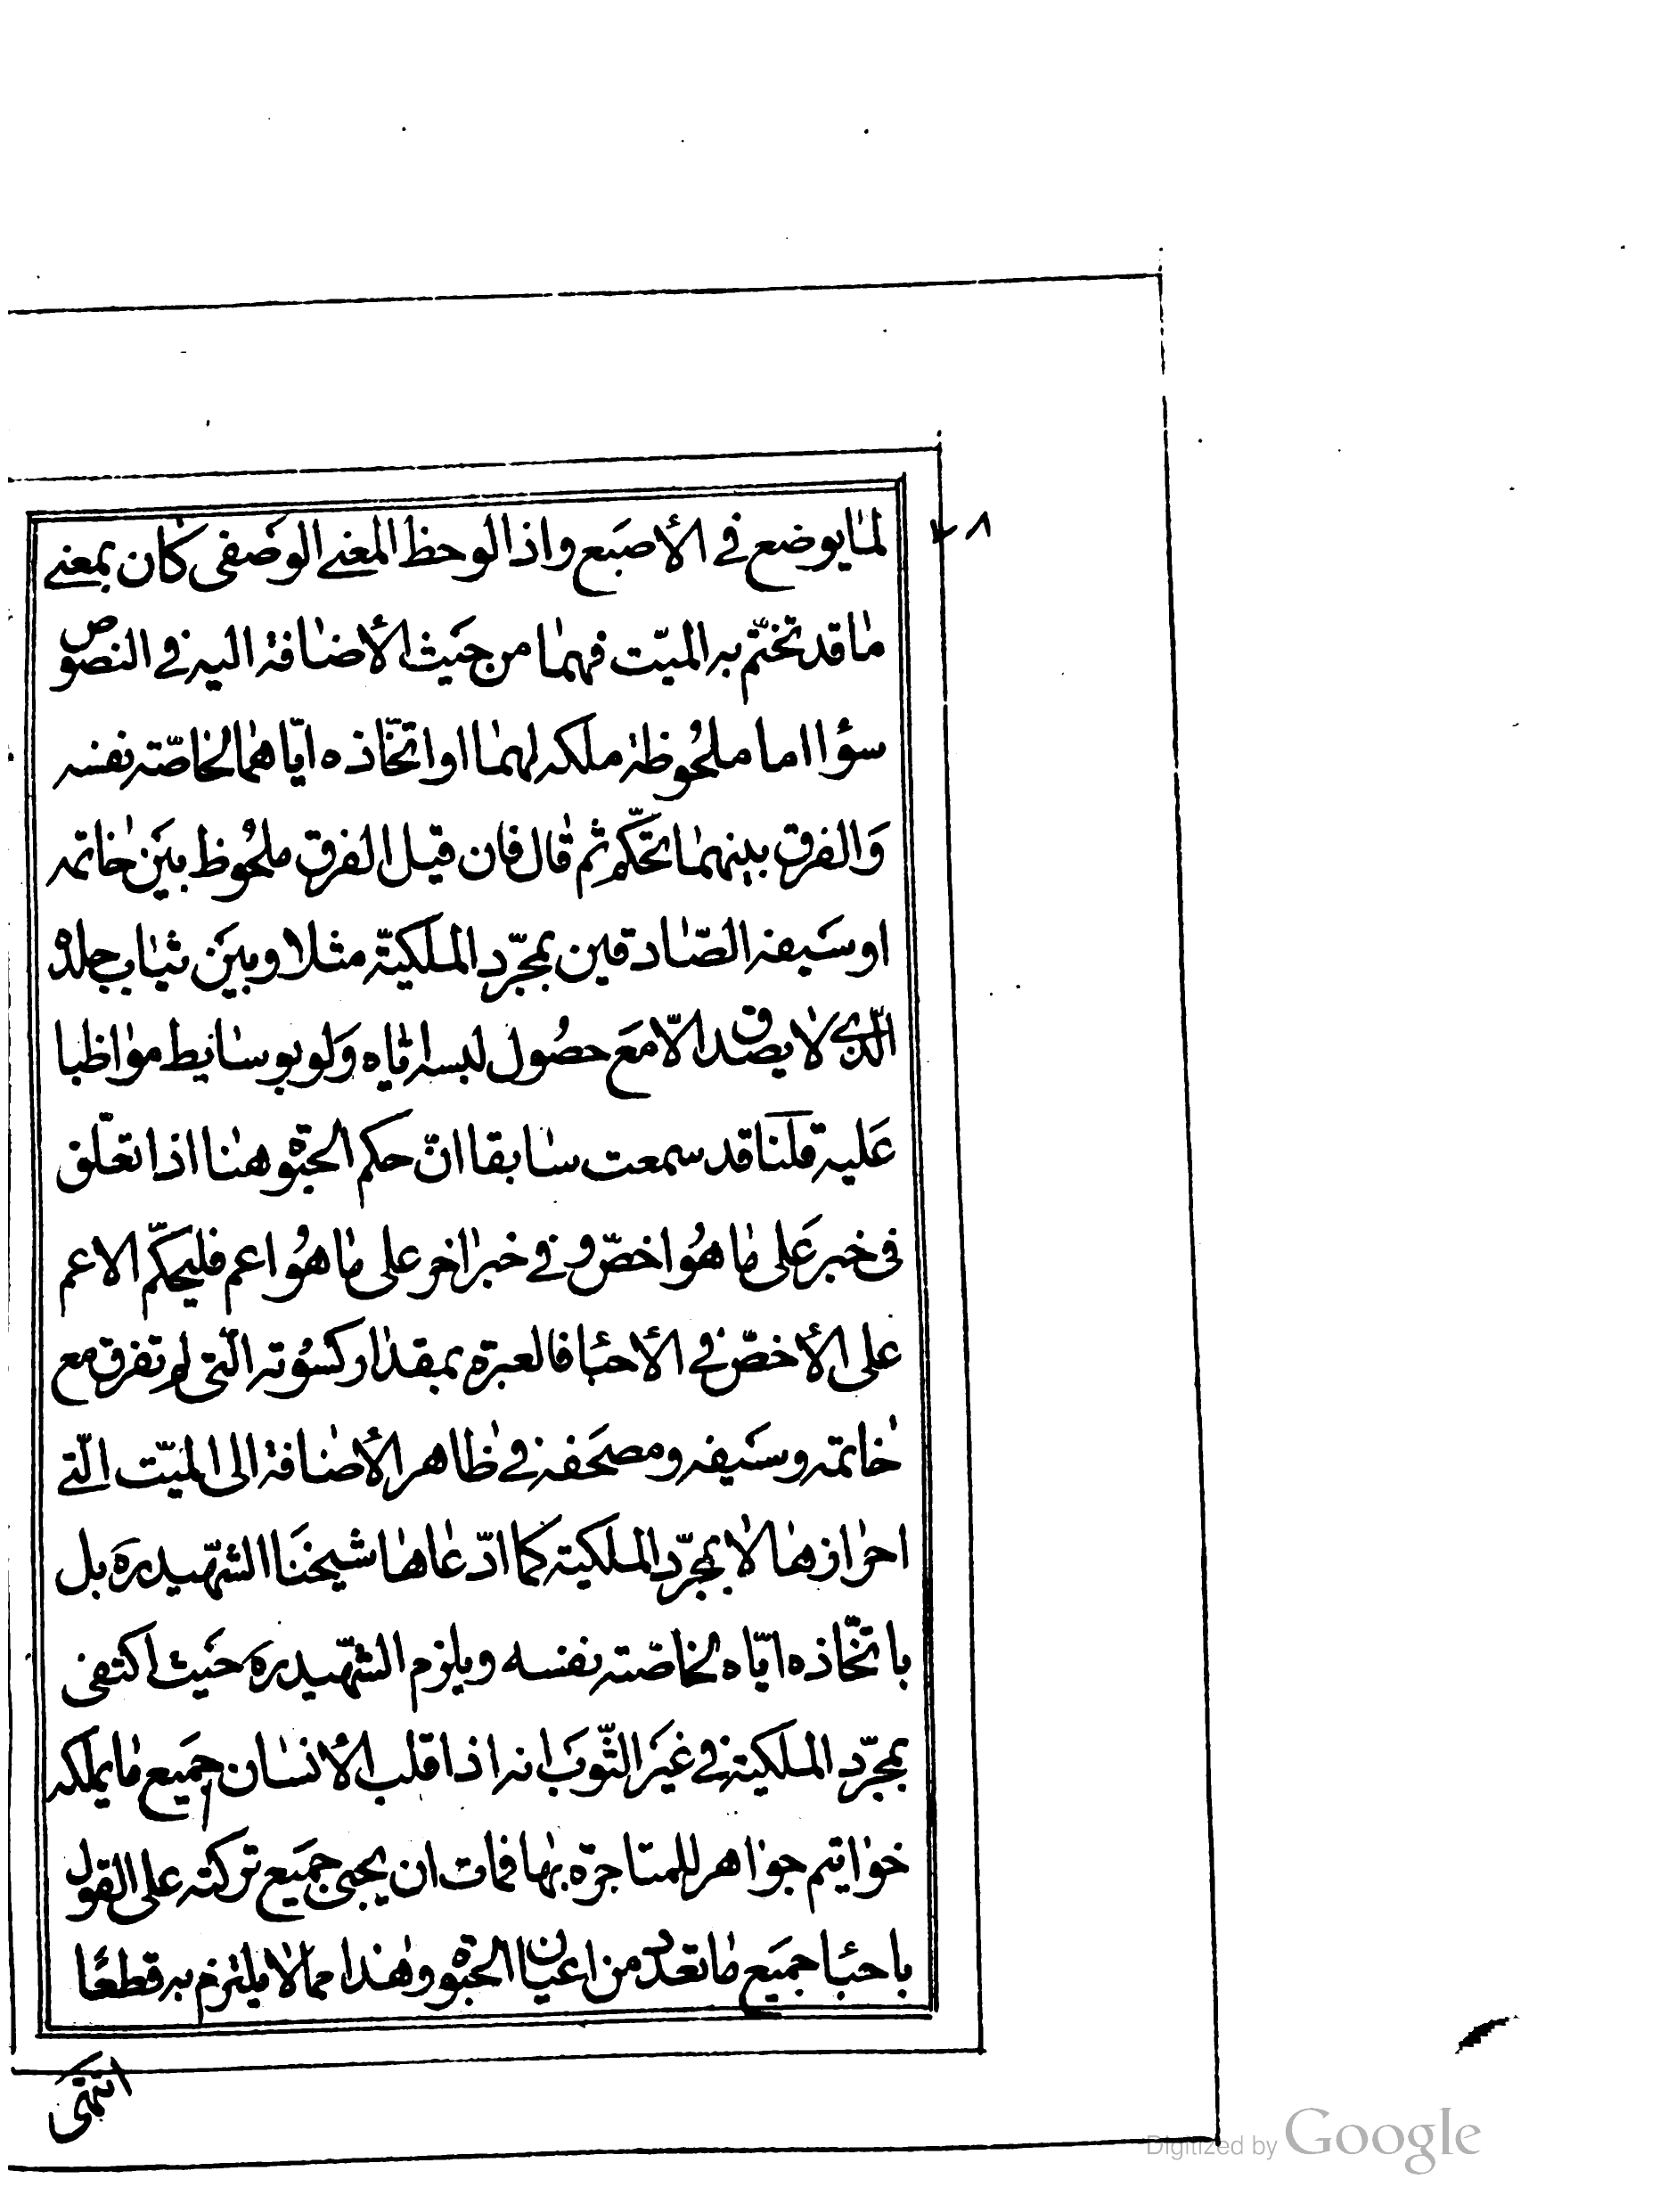 ٢٨
لما يوضع في الأصبع واذا لوحظ المعنے الوصفى كان بمعنے
ما قد تختّم به الميّت فهما من حيث الأضافة اليه في النصوص
سؤا اما ملحوظة ملكه لهما او اتخّاذه ايّاهما لخاصّة نفسه
والفرق بينهما تحكّم ثم قال فان قيل الفرق ملحوظ بين خاتمه
او سيفه الصّادقين بمجرّد الملكيّة مثلا وبين ثياب جلده
الّذي لا يصدق الّا مع حصول لبسه ايّاه ولو بوسايط مواظبا
عليه قلنا قد سمعت سابقا انّ حكم الحبوة هنا اذا تعلّق
فى خبر على ما هو اخصّ وفي خبر اخر على ما هو اعم فليحكّم الاعم
على الأخصّ في الأحبا فالعبرة بمقدار كسوته الّتى لم تفرق مع
خاتمه وسيفه ومصحفه في ظاهر الأضافة الى الميّت الّتے
احرازها لا بمجرّد الملكية كما ادّعاها شيخنا الشهيد ره بل
باتخّاذه ايّاه لخاصّة نفسه ويلزم الشهيد ره حيث اكتفى
بمجرّد الملكية في غير الثّوب انه اذا قلب الأنسان جميع ما يملكه
خواتيم جواهر للمتاجرة بها فمات ان يحبى جميع تركته على القول
باحبا جميع ما تعدّد من اعيان الحبوة وهذا مما لا يلتزم به قطعًا
انتهى
Digitized by Google